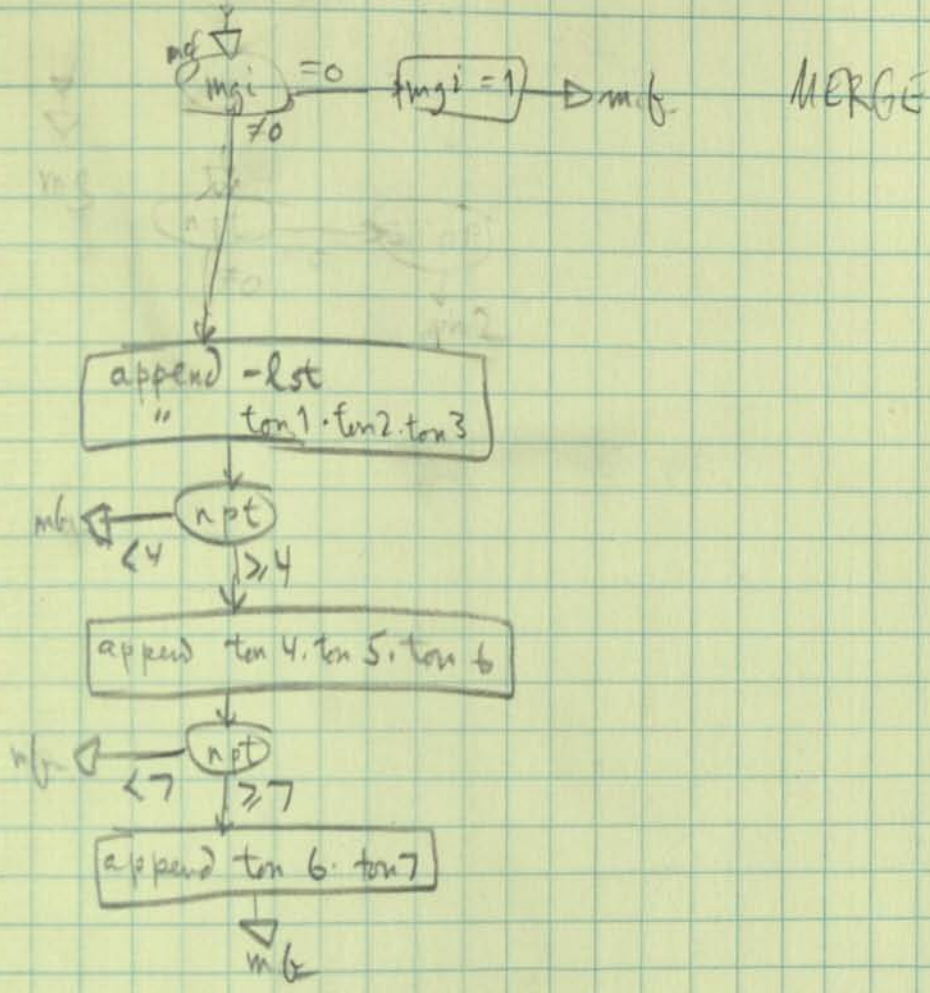 mg
mgi =0 mgi = 1 MERGE
≠0
append -lst
" ton1 . ton2 . ton3
npt
<4 ≥4
append ton 4 . ton 5 . ton 6
npt
<7 ≥7
append ton 6 . ton7